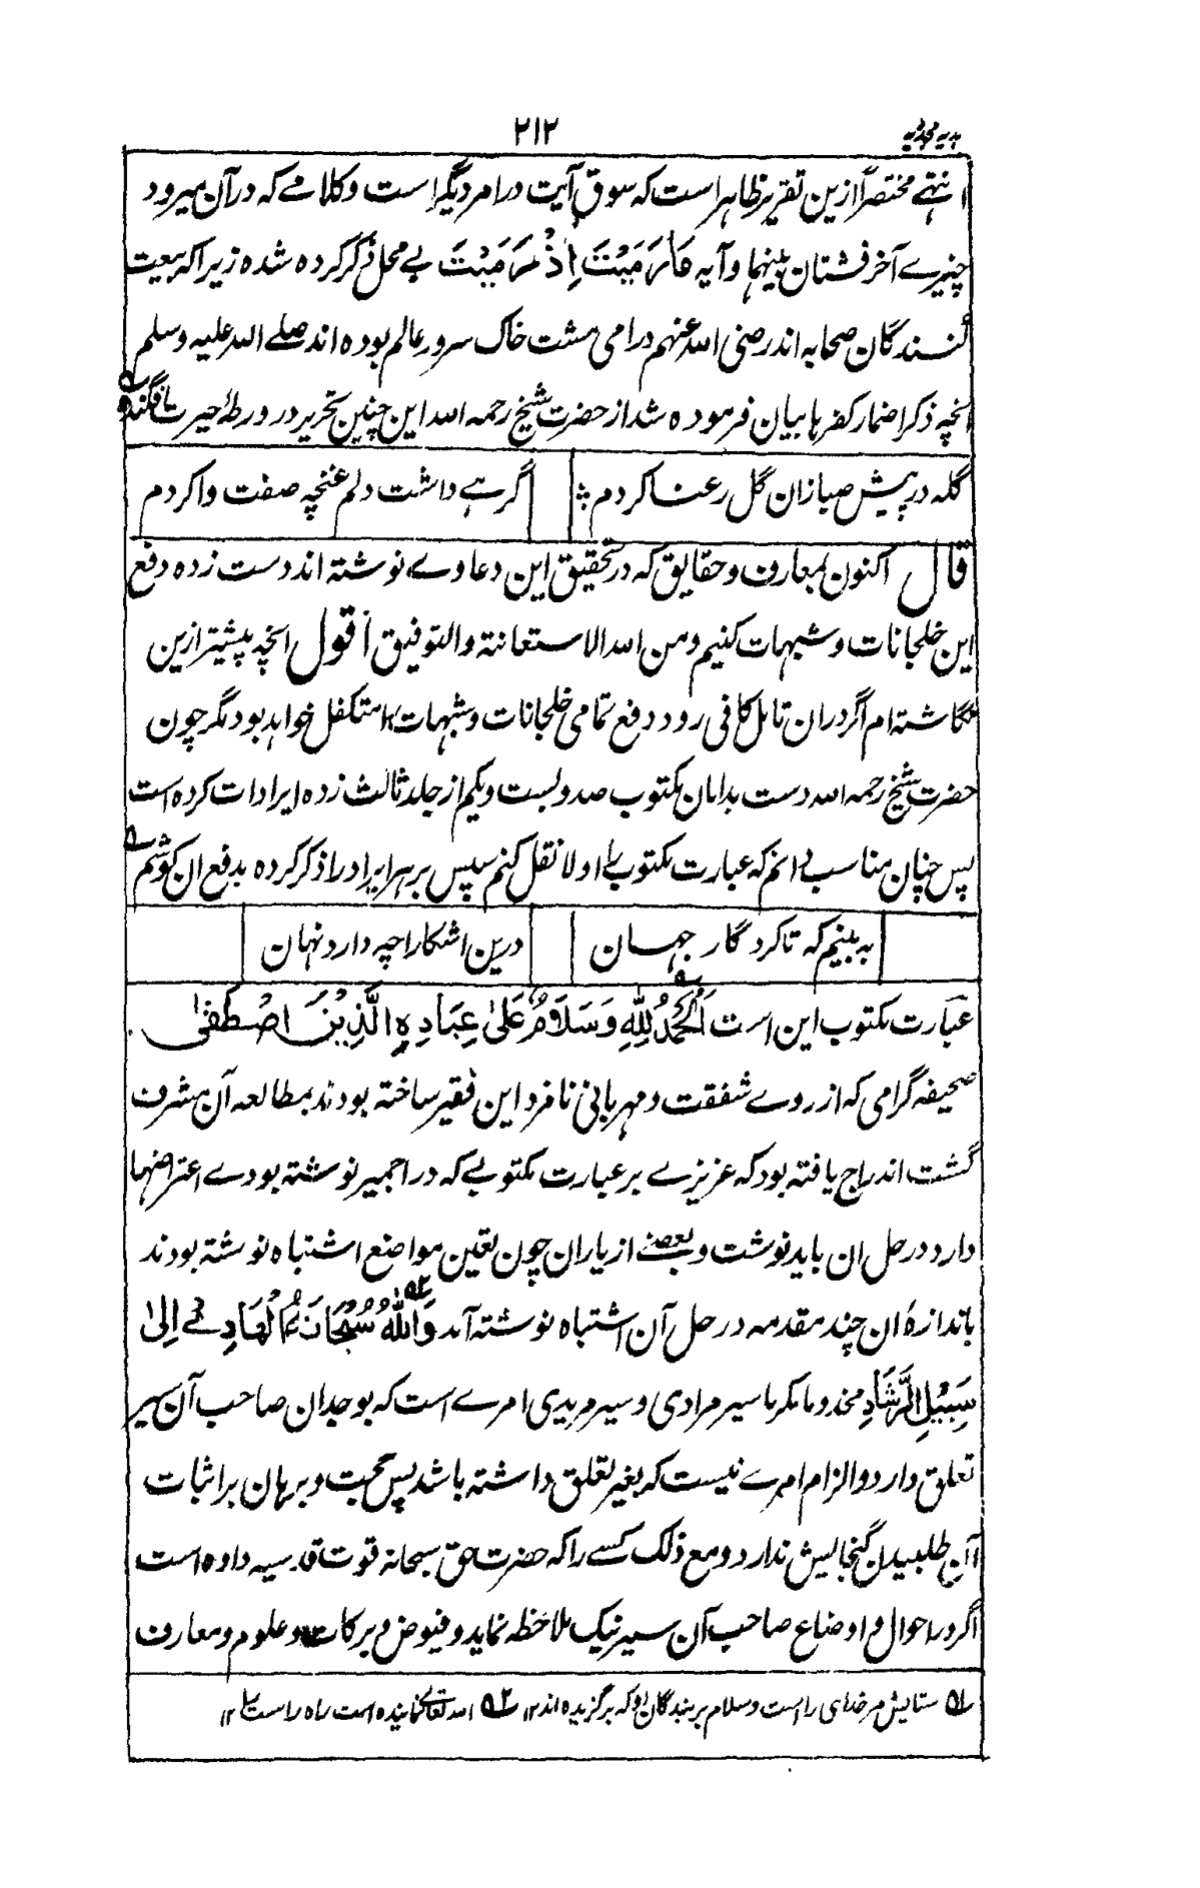 ہدیہ مجددیہ
۲۱۲
انتہے مختصراً ازین تقریر ظاہر است کہ سوق آیت در امر دیگر است و کلامے کہ در آن میرود
چیزے آخر فشتان بینہما و آیہ مَا رَمَیْتَ اِذْ رَمَیْتَ بے محل ذکر کردہ شدہ زیرا کہ بیعت
کنندگان صحابہ اند رضی اللہ عنہم و رامی مشت خاک سرور عالم بودہ اند صلے اللہ علیہ وسلم
انچہ ذکر اضمار کفرہا بیان فرمودہ شد از حضرت شیخ رحمہ اللہ این چنین تحریر در ورطۂ حیرت
گلہ در پیش صبا زان گل رعنا کردم
گرہے داشت دلم غنچہ صفت وا کردم
قال اکنون بمعارف و حقایق کہ در تحقیق این دعاوے نوشتہ اند دست زدہ دفع
این خلجانات و شبہات کنیم ومن اللہ الاستعانۃ والتوفیق اقول انچہ پیشتر ازین
نگاشتہ ام اگر دران تامل کافی رود دفع تمامی خلجانات و شبہات را متکفل خواہد بود مگر چون
حضرت شیخ رحمہ اللہ دست بدامان مکتوب صد و بست ویکم از جلد ثالث زدہ ایرادات کردہ است
پس چنان مناسب دانم کہ عبارت مکتوب را اولا نقل کنم سپس ہر ہر ایراد را ذکر کردہ بدفع ان کوشم
بہ بینیم کہ تا کردگار جہان
درین اشکارا چہ دارد نہان
عبارت مکتوب این است اَلْحَمْدُ لِلّٰهِ وَسَلَامٌ عَلٰی عِبَادِهِ الَّذِیْنَ اصْطَفٰی
صحیفہ گرامی کہ از روے شفقت و مہربانی نامزد این فقیر ساختہ بودند بمطالعہ آن مشرف
گشت اندراج یافتہ بود کہ عزیزے بر عبارت مکتوبے کہ در اجمیر نوشتہ بودے اعتراضہا
دارد در حل ان باید نوشت و بعضے از یاران چون تعین مواضع اشتباہ نوشتہ بودند
باندازۂ ان چند مقدمہ در حل آن اشتباہ نوشتہ آمد وَاللّٰهُ سُبْحَانَهُ الْهَادِیْ اِلٰی
سَبِیْلِ الرَّشَادِ مخدوما مکرما سیر مرادی و سیر مریدی امرے است کہ بوجدان صاحب آن سیر
تعلق دارد و الزام امرے نیست کہ بغیر تعلق داشتہ باشد پس حجت و برہان بر اثبات
آن طلبیدن گنجایش ندارد و مع ذلک کسے را کہ حضرت حق سبحانہ قوت قدسیہ دادہ است
اگر در احوال و اوضاع صاحب آن سیر نیک ملاحظہ نماید و فیوض و برکات و علوم و معارف
۱؎ ستایش مر خدای را است و سلام بر بندگان او کہ برگزیدہ اند ۱۲ ۲؎ اللہ تعالے نمایندہ است راہ راست را ۱۲